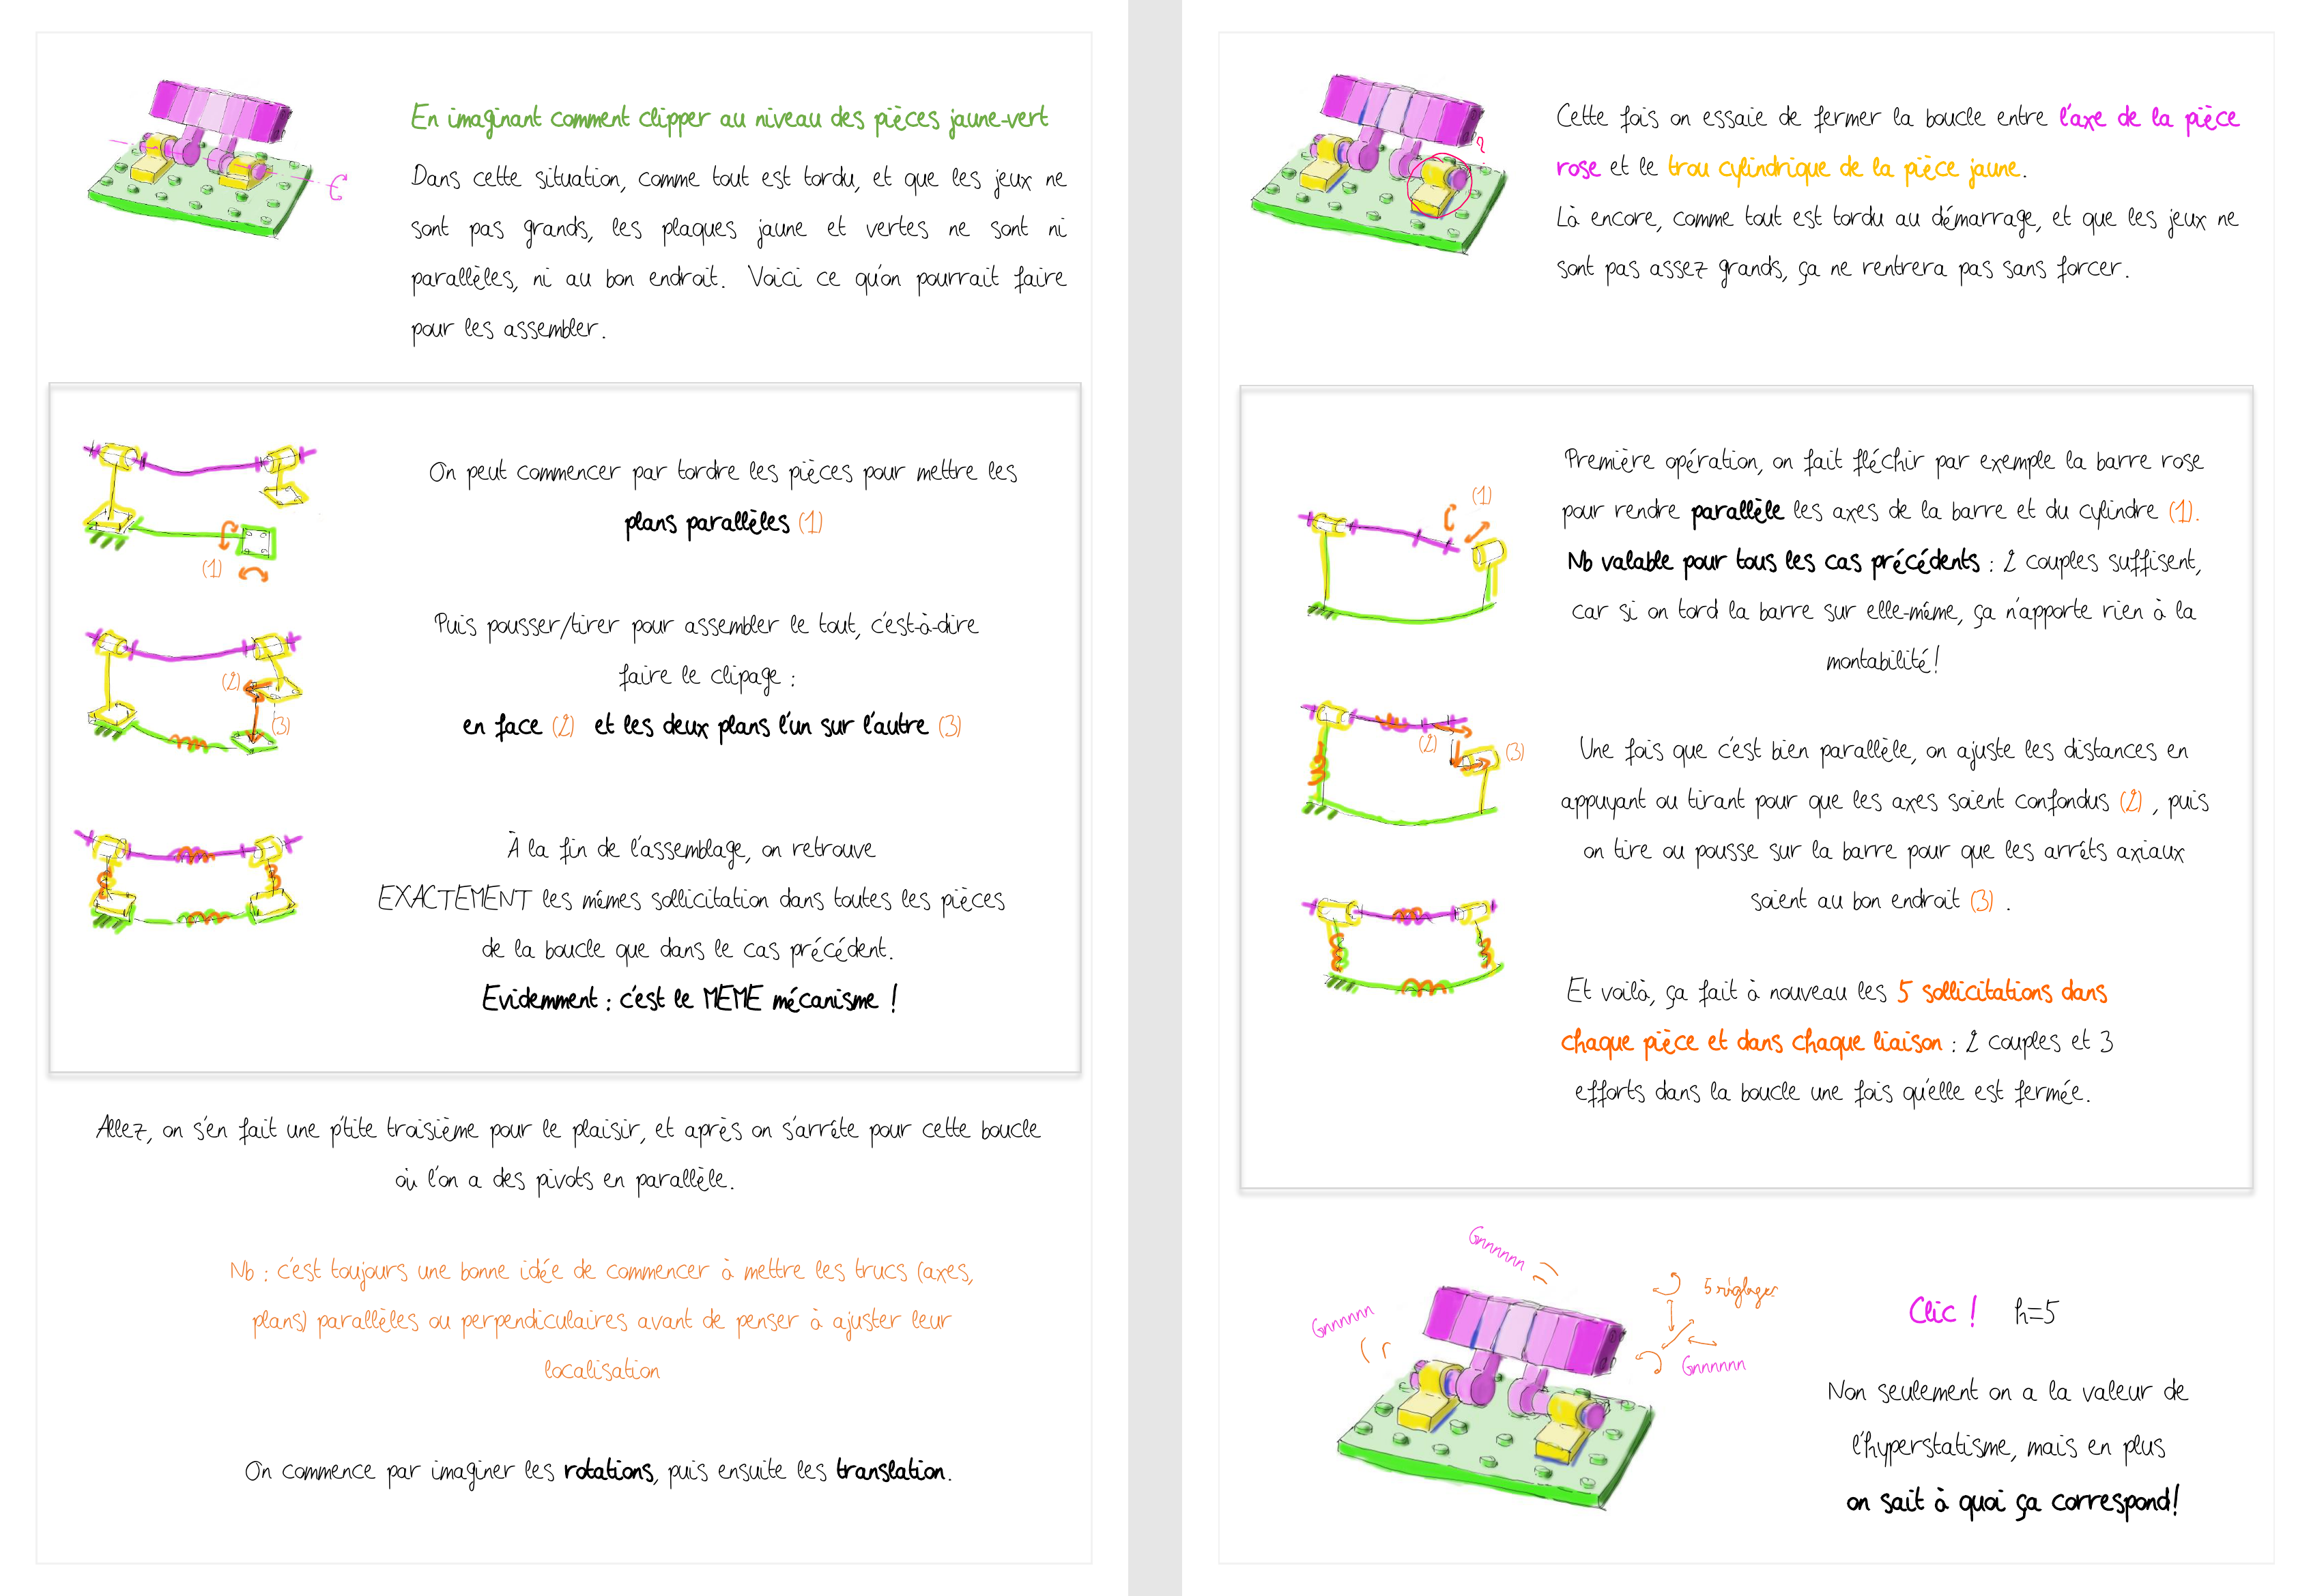 En imaginant comment clipper au niveau des pièces jaune-vert
Dans cette situation, comme tout est tordu, et que les jeux ne
sont pas grands, les plaques jaune et vertes ne sont ni
parallèles, ni au bon endroit. Voici ce qu'on pourrait faire
pour les assembler.
On peut commencer par tordre les pièces pour mettre les
plans parallèles (1)
(1)
Puis pousser/tirer pour assembler le tout, c'est-à-dire
faire le clipage :
en face (2) et les deux plans l'un sur l'autre (3)
(2)
(3)
À la fin de l'assemblage, on retrouve
EXACTEMENT les mêmes sollicitation dans toutes les pièces
de la boucle que dans le cas précédent.
Evidemment : c'est le MEME mécanisme !
Allez, on s'en fait une p'tite troisième pour le plaisir, et après on s'arrête pour cette boucle
où l'on a des pivots en parallèle.
Nb : c'est toujours une bonne idée de commencer à mettre les trucs (axes,
plans) parallèles ou perpendiculaires avant de penser à ajuster leur
localisation
On commence par imaginer les rotations, puis ensuite les translation.
Cette fois on essaie de fermer la boucle entre l'axe de la pièce
rose et le trou cylindrique de la pièce jaune.
Là encore, comme tout est tordu au démarrage, et que les jeux ne
sont pas assez grands, ça ne rentrera pas sans forcer.
Première opération, on fait fléchir par exemple la barre rose
pour rendre parallèle les axes de la barre et du cylindre (1).
Nb valable pour tous les cas précédents : 2 couples suffisent,
car si on tord la barre sur elle-même, ça n'apporte rien à la
montabilité!
(1)
Une fois que c'est bien parallèle, on ajuste les distances en
appuyant ou tirant pour que les axes soient confondus (2) , puis
on tire ou pousse sur la barre pour que les arrêts axiaux
soient au bon endroit (3) .
(2)
(3)
Et voilà, ça fait à nouveau les 5 sollicitations dans
chaque pièce et dans chaque liaison : 2 couples et 3
efforts dans la boucle une fois qu'elle est fermée.
Gnnnnnn
Gnnnnnn
5 réglages
Gnnnnnn
Clic ! h=5
Non seulement on a la valeur de
l'hyperstatisme, mais en plus
on sait à quoi ça correspond!